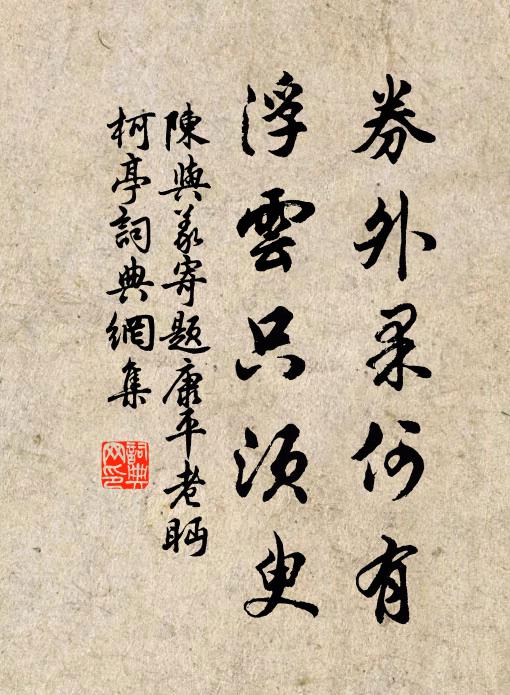 券外果何有
浮雲只須臾
陳與義寄題康平老眄
柯亭詞典網集
詞典網印